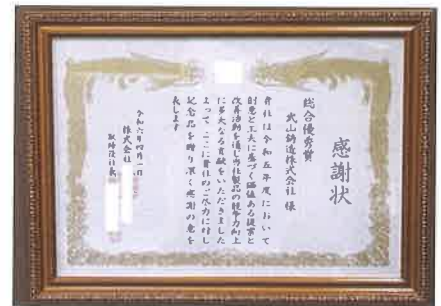 感謝状
総合優秀賞
武山鋳造株式会社 様
貴社は令和五年度において
創意と工夫に基づく価値ある提案と
改善活動を通し当社製品の競争力向上
に多大なる貢献をいただきました
よって ここに貴社のご尽力に対し
記念品を贈り深く感謝の意を
表します
令和六年四月 日
株式会社
取締役社長